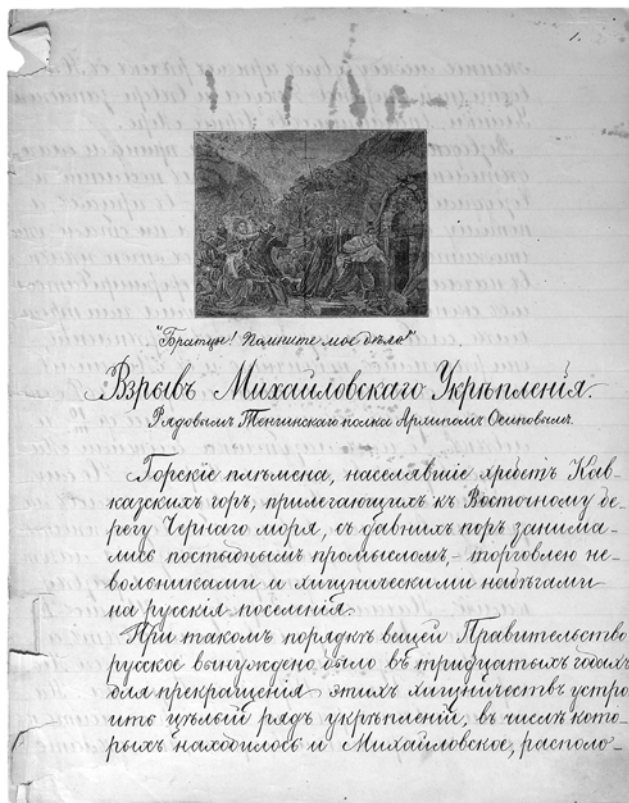 1.
"Братцы! Помните мое дѣло!"
Взрывъ Михайловскаго Укрѣпленія.
Рядовымъ Тенгинскаго полка Архипомъ Осиповымъ.
Горскіе племена, населявшіе хребетъ Кав-
казскихъ горъ, прилегающихъ къ Восточному бе-
регу Чернаго моря, съ давнихъ поръ занима-
лись постыднымъ промысломъ, - торговлею не-
вольниками и хищническими набѣгами
на русскія поселенія.
При такомъ порядкѣ вещей Правительство
русское вынуждено было въ тридцатыхъ годахъ
для прекращенія этихъ хищничествъ устро
ить цѣлый рядъ укрѣпленій, въ числѣ кото-
рыхъ находилось и Михайловское, располо-